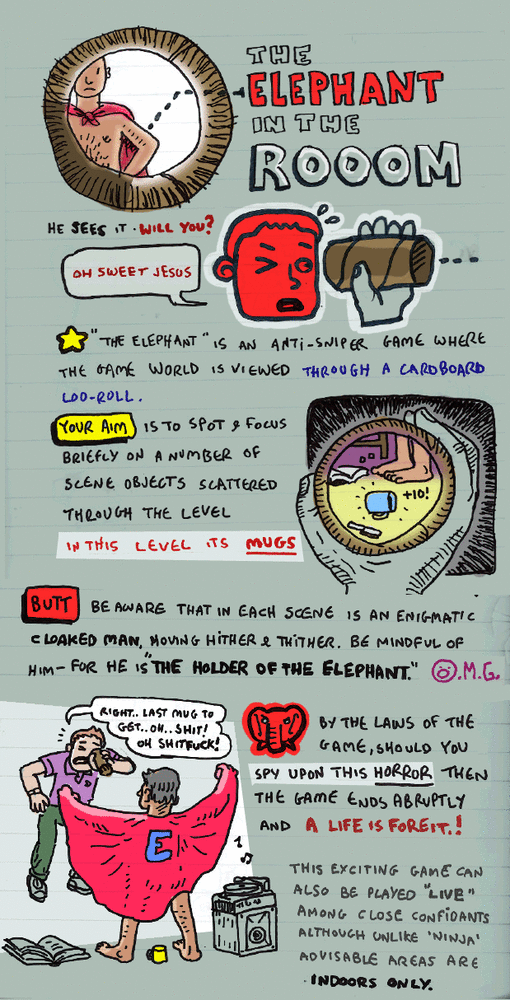 THE
ELEPHANT
IN THE
ROOOM
HE SEES IT. WILL YOU?
OH SWEET JESUS
"THE ELEPHANT" IS AN ANTI-SNIPER GAME WHERE
THE GAME WORLD IS VIEWED THROUGH A CARDBOARD
LOO-ROLL.
YOUR AIM IS TO SPOT & FOCUS
BRIEFLY ON A NUMBER OF
SCENE OBJECTS SCATTERED
THROUGH THE LEVEL
IN THIS LEVEL ITS MUGS
+10!
BUTT BE AWARE THAT IN EACH SCENE IS AN ENIGMATIC
CLOAKED MAN, MOVING HITHER & THITHER. BE MINDFUL OF
HIM- FOR HE IS "THE HOLDER OF THE ELEPHANT." O.M.G.
RIGHT.. LAST MUG TO
GET..OH..SHIT!
OH SHITFUCK!
E
BY THE LAWS OF THE
GAME, SHOULD YOU
SPY UPON THIS HORROR THEN
THE GAME ENDS ABRUPTLY
AND A LIFE IS FOREIT.!
THIS EXCITING GAME CAN
ALSO BE PLAYED "LIVE"
AMONG CLOSE CONFIDANTS
ALTHOUGH UNLIKE 'NINJA'
ADVISABLE AREAS ARE
INDOORS ONLY.